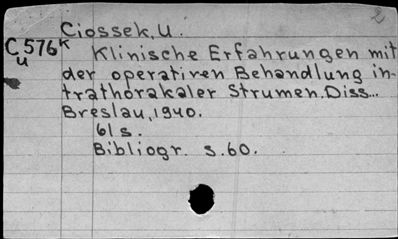 2
Ciossek, U.
C576k
u
Klinische Erfahrungen mit
der operativen Behandlung in-
trathorakaler Strumen. Diss...
Breslau, 1940.
61 s.
Bibliogr. s. 60.